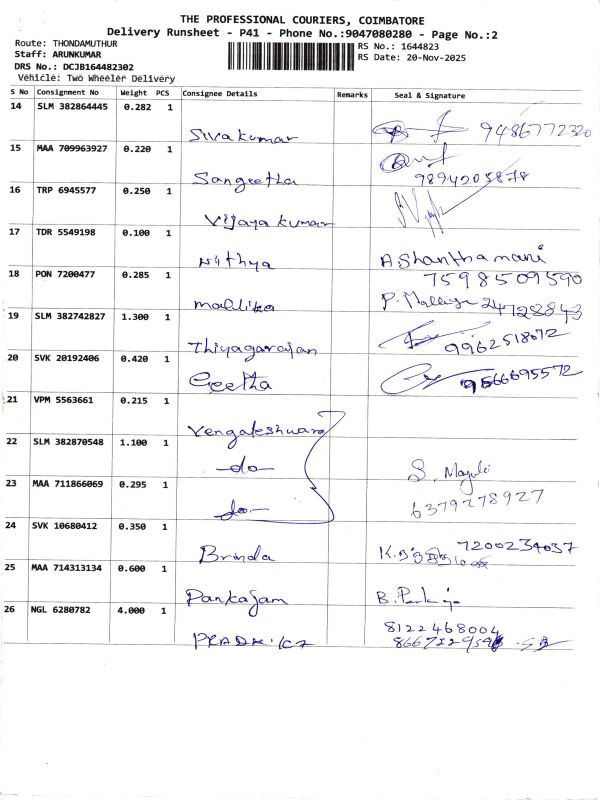 THE PROFESSIONAL COURIERS, COIMBATORE
Delivery Runsheet - P41 - Phone No.:9047080280 - Page No.:2
Route: THONDAMUTHUR
RS No.: 1644823
Staff: ARUNKUMAR
RS Date: 20-Nov-2025
DRS No.: DCJB164482302
Vehicle: Two Wheeler Delivery
S No Consignment No Weight PCS Consignee Details Remarks Seal & Signature
14 SLM 382864445 0.282 1
Sivakumar 9486772320
15 MAA 709963927 0.220 1
Sangeetha 9894205878
16 TRP 6945577 0.250 1
Vijaya kumar
17 TDR 5549198 0.100 1
Nithya A.Shanthamani
7598509590
18 PON 7200477 0.285 1
Mallika P.
19 SLM 382742827 1.300 1
Thiyagarajan 9962518072
20 SVK 20192406 0.420 1
Geetha 9566695572
21 VPM 5563661 0.215 1
Vengateshwara
22 SLM 382870548 1.100 1
-do- S.
23 MAA 711866069 0.295 1
-do- 6379278927
24 SVK 10680412 0.350 1
Brinda 7200234037
25 MAA 714313134 0.600 1
Pankajam B.
26 NGL 6280782 4.000 1
8122468004